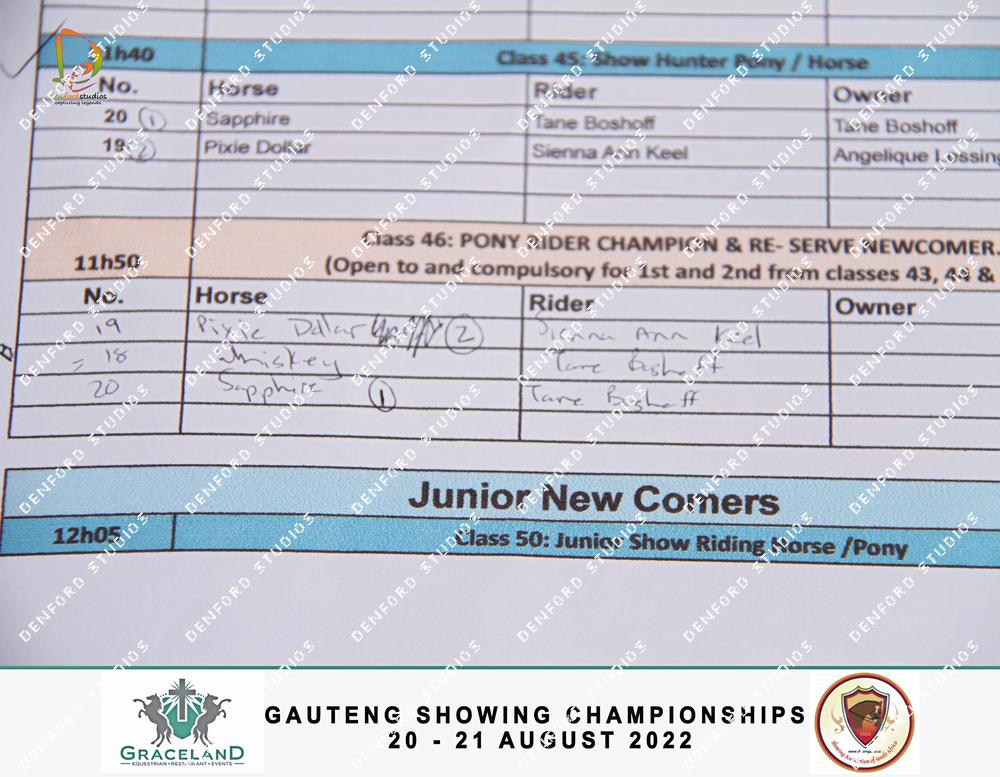 11h40 Class 45: Show Hunter Pony / Horse
No. Horse Rider Owner
20 1 Sapphire Tane Boshoff Tane Boshoff
19 2 Pixie Dollar Sienna Ann Keel Angelique Lessing
Class 46: PONY RIDER CHAMPION & RE- SERVE NEWCOMER
11h50 (Open to and compulsory for 1st and 2nd from classes 43, 44 &
No. Horse Rider Owner
19 Pixie Dollar 2 Sienna Ann Keel
18 Whiskey Tane Boshoff
20 Sapphire 1 Tane Boshoff
Junior New Comers
12h05 Class 50: Junior Show Riding Horse /Pony
denfordstudios
capturing legends
DENFORD STUDIOS
GRACELAND
EQUESTRIAN • RESTAURANT • EVENTS
GAUTENG SHOWING CHAMPIONSHIPS
20 - 21 AUGUST 2022
Showing Association of South Africa